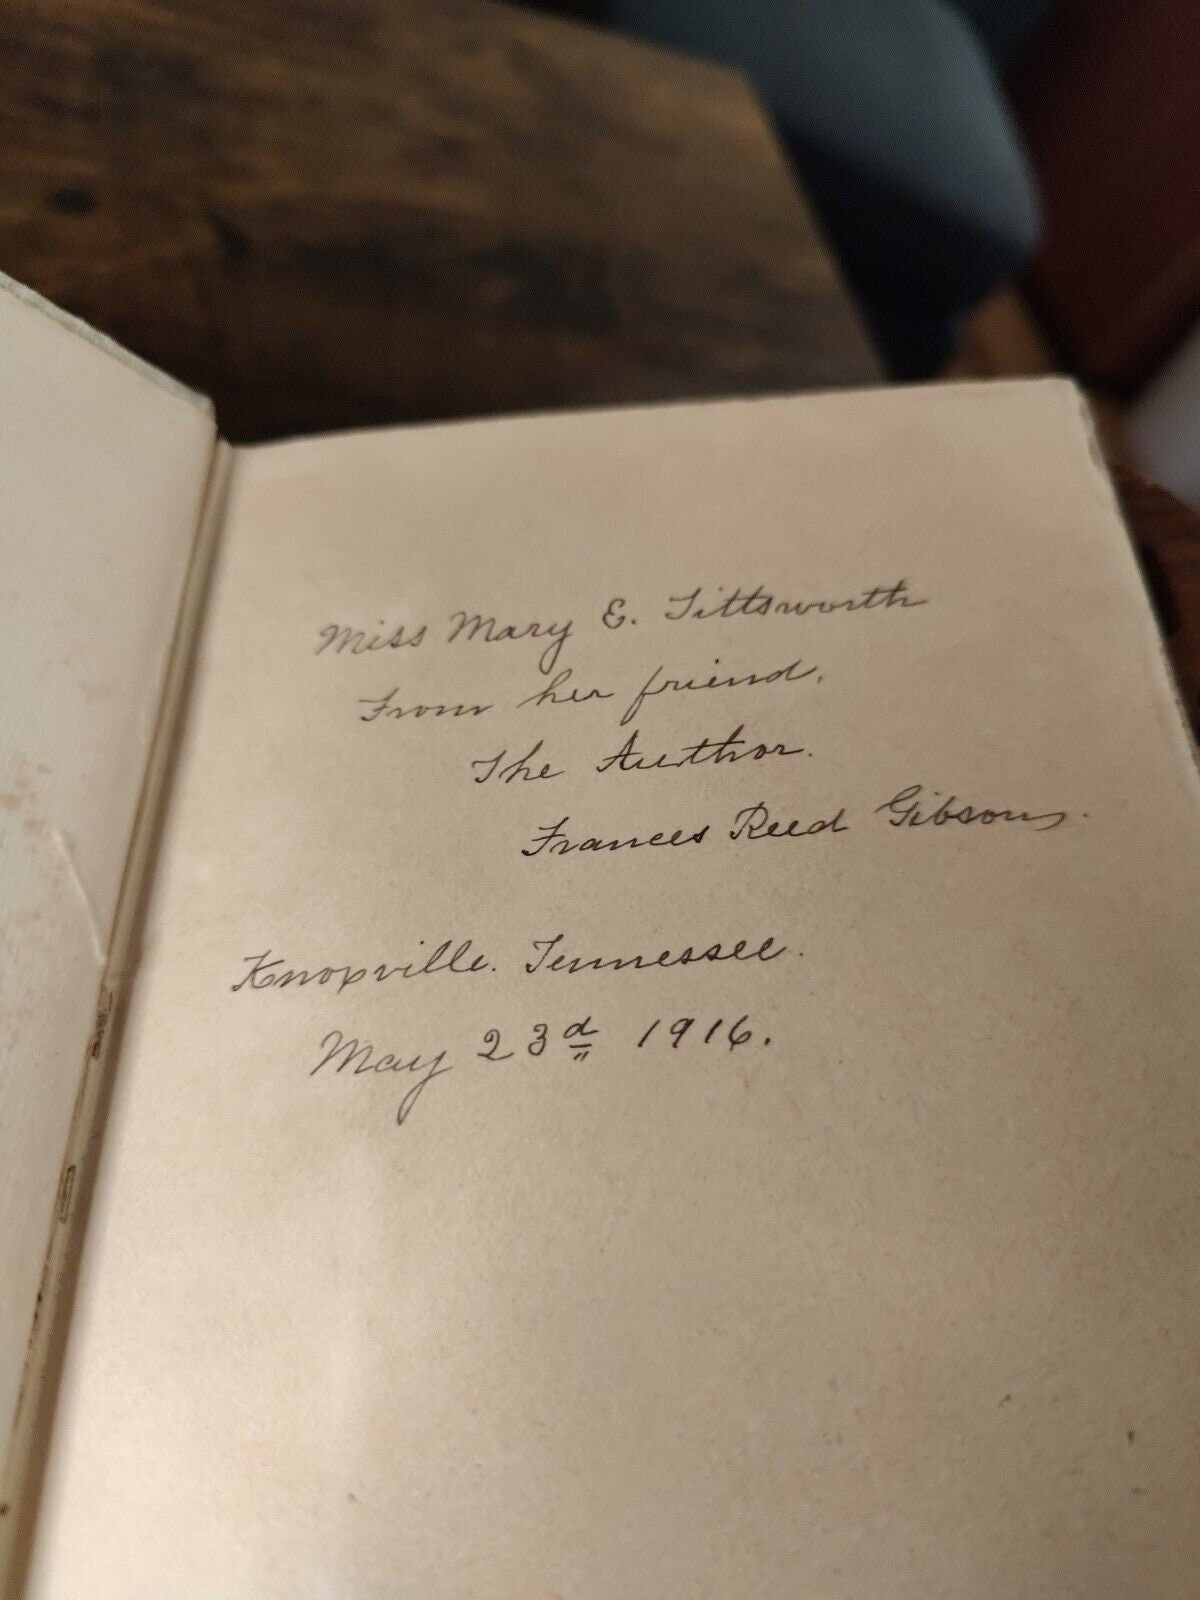 Miss Mary E. Tittsworth
From her friend,
The Author.
Frances Reed Gibson.
Knoxville. Tennessee.
May 23d 1916.